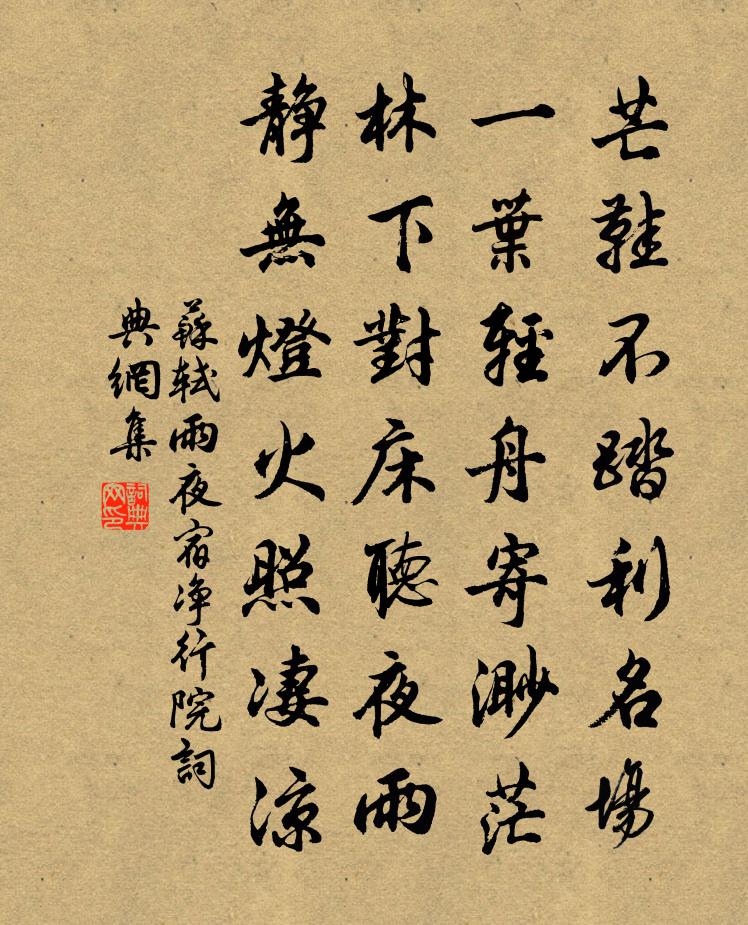 芒鞋不踏利名場
一葉輕舟寄渺茫
林下對床聽夜雨
靜無燈火照淒涼
蘇軾雨夜宿淨行院詞
典網集
詞典
网印